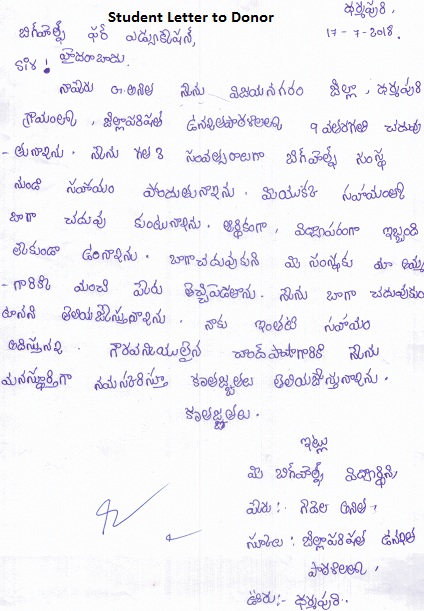 Student Letter to Donor
ధర్మపురి,
17-7-2018.
బిగ్‌హెల్ప్ ఫర్ ఎడ్యుకేషన్,
హైదరాబాదు.
సార్ !
నాపేరు అనిత నేను విజయనగరం జిల్లా, ధర్మపురి
గ్రామంలో, జిల్లాపరిషత్ ఉన్నతపాఠశాలలో 9 వతరగతి చదువు
-తున్నాను. నేను గత 3 సంవత్సరాలుగా బిగ్‌హెల్ప్ సంస్థ
నుండి సహాయం పొందుతున్నాను. మీయొక్క సహాయంతో
బాగా చదువు కుంటున్నాను. ఆర్థికంగా, విద్యాపరంగా ఇబ్బంది
లేకుండా ఉన్నాను. బాగాచదువుకుని మీ సంస్థకు మా అమ్మ
-గారికి మంచి పేరు తెచ్చిపెడతాను. నేను బాగా చదువుకుం
టానని తెలియజేస్తున్నాను. నాకు ఇంతటి సహాయం
అందిస్తున్న గౌరవనీయులైన చాంద్‌పాషాగారికి నేను
మనస్ఫూర్తిగా నమస్కరిస్తూ కృతజ్ఞతలు తెలియజేస్తున్నాను.
కృతజ్ఞతలు.
ఇట్లు
మీ బిగ్‌హెల్ప్ విద్యార్థిని,
పేరు:- అనిత,
స్కూలు: జిల్లాపరిషత్ ఉన్నత
పాఠశాల,
ఊరు:- ధర్మపురి.